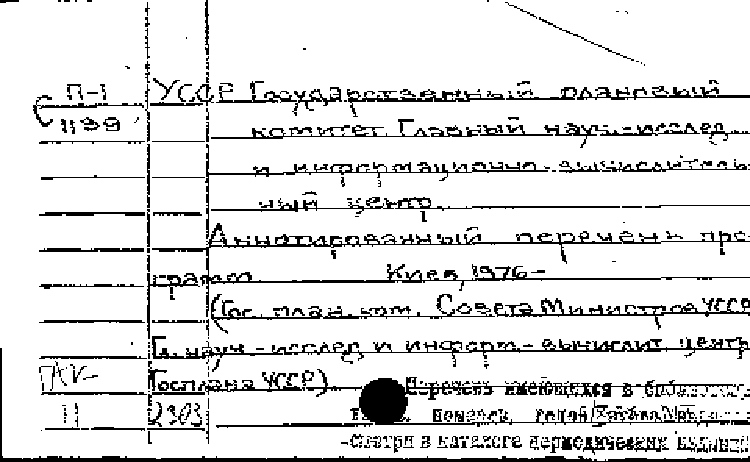 П-1 УССР Государственный плановый
1139 комитет. Главный науч.-исслед.
и информационно-вычислитель
ный центр.
Аннотированный перечень про-
грамм Киев, 1976-
(Гос. план. ком. Совета Министров УССР
Гл. науч.-исслед и информ.-вычислит центр
Госплана УССР)
Перечень имеющихся в
11 2303 номеров,
-смотри в каталоге периодических